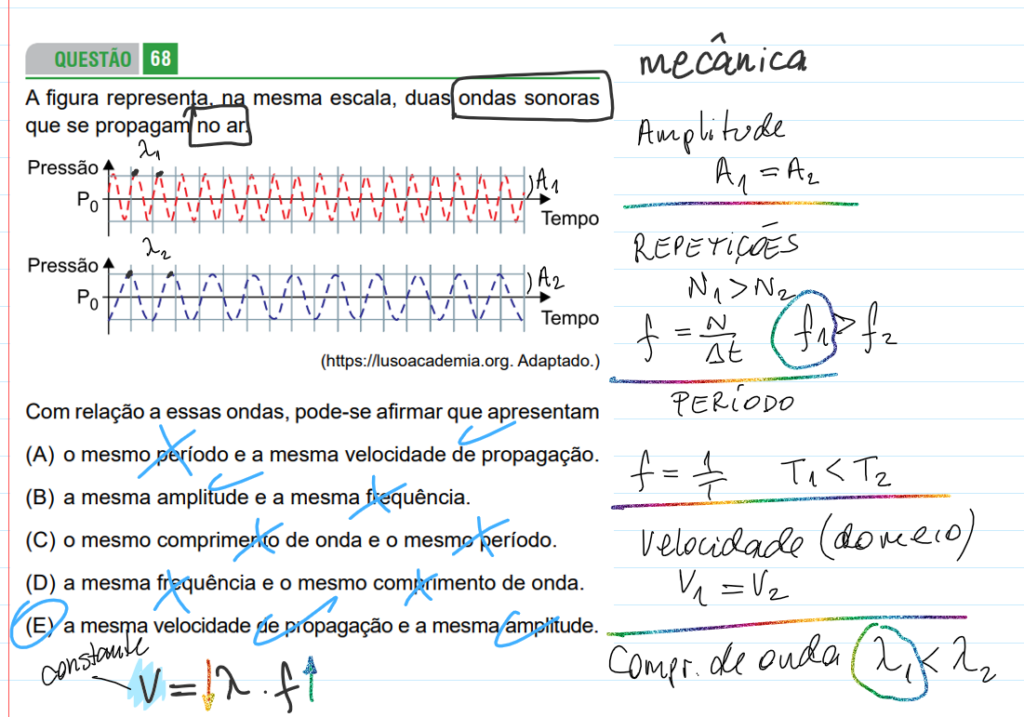 QUESTÃO 68
A figura representa, na mesma escala, duas ondas sonoras
que se propagam no ar.
λ1
Pressão
P0
A1
Tempo
λ2
Pressão
P0
A2
Tempo
(https://lusoacademia.org. Adaptado.)
Com relação a essas ondas, pode-se afirmar que apresentam
(A) o mesmo período e a mesma velocidade de propagação.
(B) a mesma amplitude e a mesma frequência.
(C) o mesmo comprimento de onda e o mesmo período.
(D) a mesma frequência e o mesmo comprimento de onda.
(E) a mesma velocidade de propagação e a mesma amplitude.
constante
V = ↓λ . f↑
mecânica
Amplitude
A1 = A2
REPETIÇÕES
N1 > N2
f = N/Δt f1 > f2
PERÍODO
f = 1/T T1 < T2
Velocidade (do meio)
V1 = V2
Compr. de onda λ1 < λ2